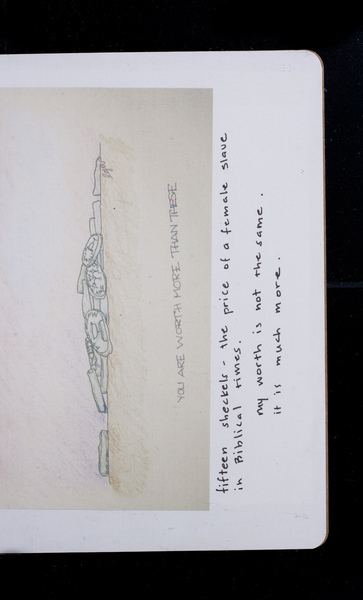 YOU ARE WORTH MORE THAN THESE
fifteen sheckels - the price of a female slave
in Biblical times.
my worth is not the same.
it is much more.